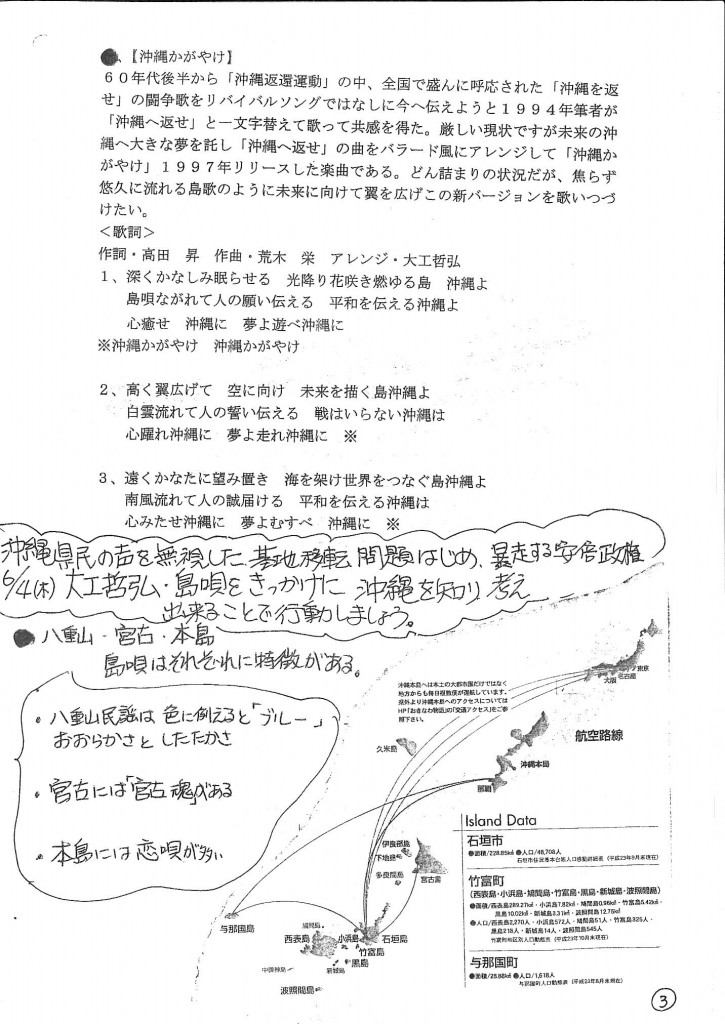 【沖縄かがやけ】
60年代後半から「沖縄返還運動」の中、全国で盛んに呼応された「沖縄を返
せ」の闘争歌をリバイバルソングではなしに今へ伝えようと1994年筆者が
「沖縄へ返せ」と一文字替えて歌って共感を得た。厳しい現状ですが未来の沖
縄へ大きな夢を託し「沖縄へ返せ」の曲をバラード風にアレンジして「沖縄か
がやけ」1997年リリースした楽曲である。どん詰まりの状況だが、焦らず
悠久に流れる島歌のように未来に向けて翼を広げこの新バージョンを歌いつづ
けたい。
＜歌詞＞
作詞・高田　昇　作曲・荒木　栄　アレンジ・大工哲弘
1、深くかなしみ眠らせる　光降り花咲き燃ゆる島　沖縄よ
島唄ながれて人の願い伝える　平和を伝える沖縄よ
心癒せ　沖縄に　夢よ遊べ沖縄に
※沖縄かがやけ　沖縄かがやけ
2、高く翼広げて　空に向け　未来を描く島沖縄よ
白雲流れて人の誓い伝える　戦はいらない沖縄は
心躍れ沖縄に　夢よ走れ沖縄に　※
3、遠くかなたに望み置き　海を架け世界をつなぐ島沖縄よ
南風流れて人の誠届ける　平和を伝える沖縄は
心みたせ沖縄に　夢よむすべ　沖縄に　※
沖縄県民の声を無視した、基地移転問題はじめ、暴走する安倍政権
6/4(木)大工哲弘・島唄をきっかけに　沖縄を知り　考え
出来ることで行動しましょう。
●八重山・宮古・本島
島唄はそれぞれに特徴がある。
・八重山民謡は色に例えると「ブルー」
おおらかさとしたたかさ
・宮古には「宮古魂」がある
・本島には恋唄が多い
沖縄本島へは本土の大都市圏だけではなく
地方からも毎日複数便が運航しています。
県外より沖縄本島へのアクセスについては
HP「おきなわ物語」の「交通アクセス」をご参
照下さい。
東京
名古屋
大阪
航空路線
久米島
沖縄本島
那覇
伊良部島
下地島
多良間島
宮古島
与那国島
鳩間島
西表島
小浜島
石垣島
竹富島
黒島
新城島
中御神島
波照間島
Island Data
石垣市
●面積/228.85k㎡ ●人口/48,708人
石垣市住民基本台帳人口移動詳細視（平成23年9月末現在）
竹富町
(西表島・小浜島・鳩間島・竹富島・黒島・新城島・波照間島)
●面積/西表島289.27k㎡・小浜島7.82k㎡・鳩間島0.96k㎡・竹富島5.42k㎡・
黒島10.02k㎡・新城島3.31k㎡・波照間島12.75k㎡
●人口/西表島2,270人・小浜島572人・鳩間島51人・竹富島325人・
黒島218人・新城島14人・波照間島545人
竹富町地区別人口動態票（平成23年10月末現在）
与那国町
●面積/28.88k㎡ ●人口/1,618人
与那国町人口動態票（平成23年8月末現在）
③